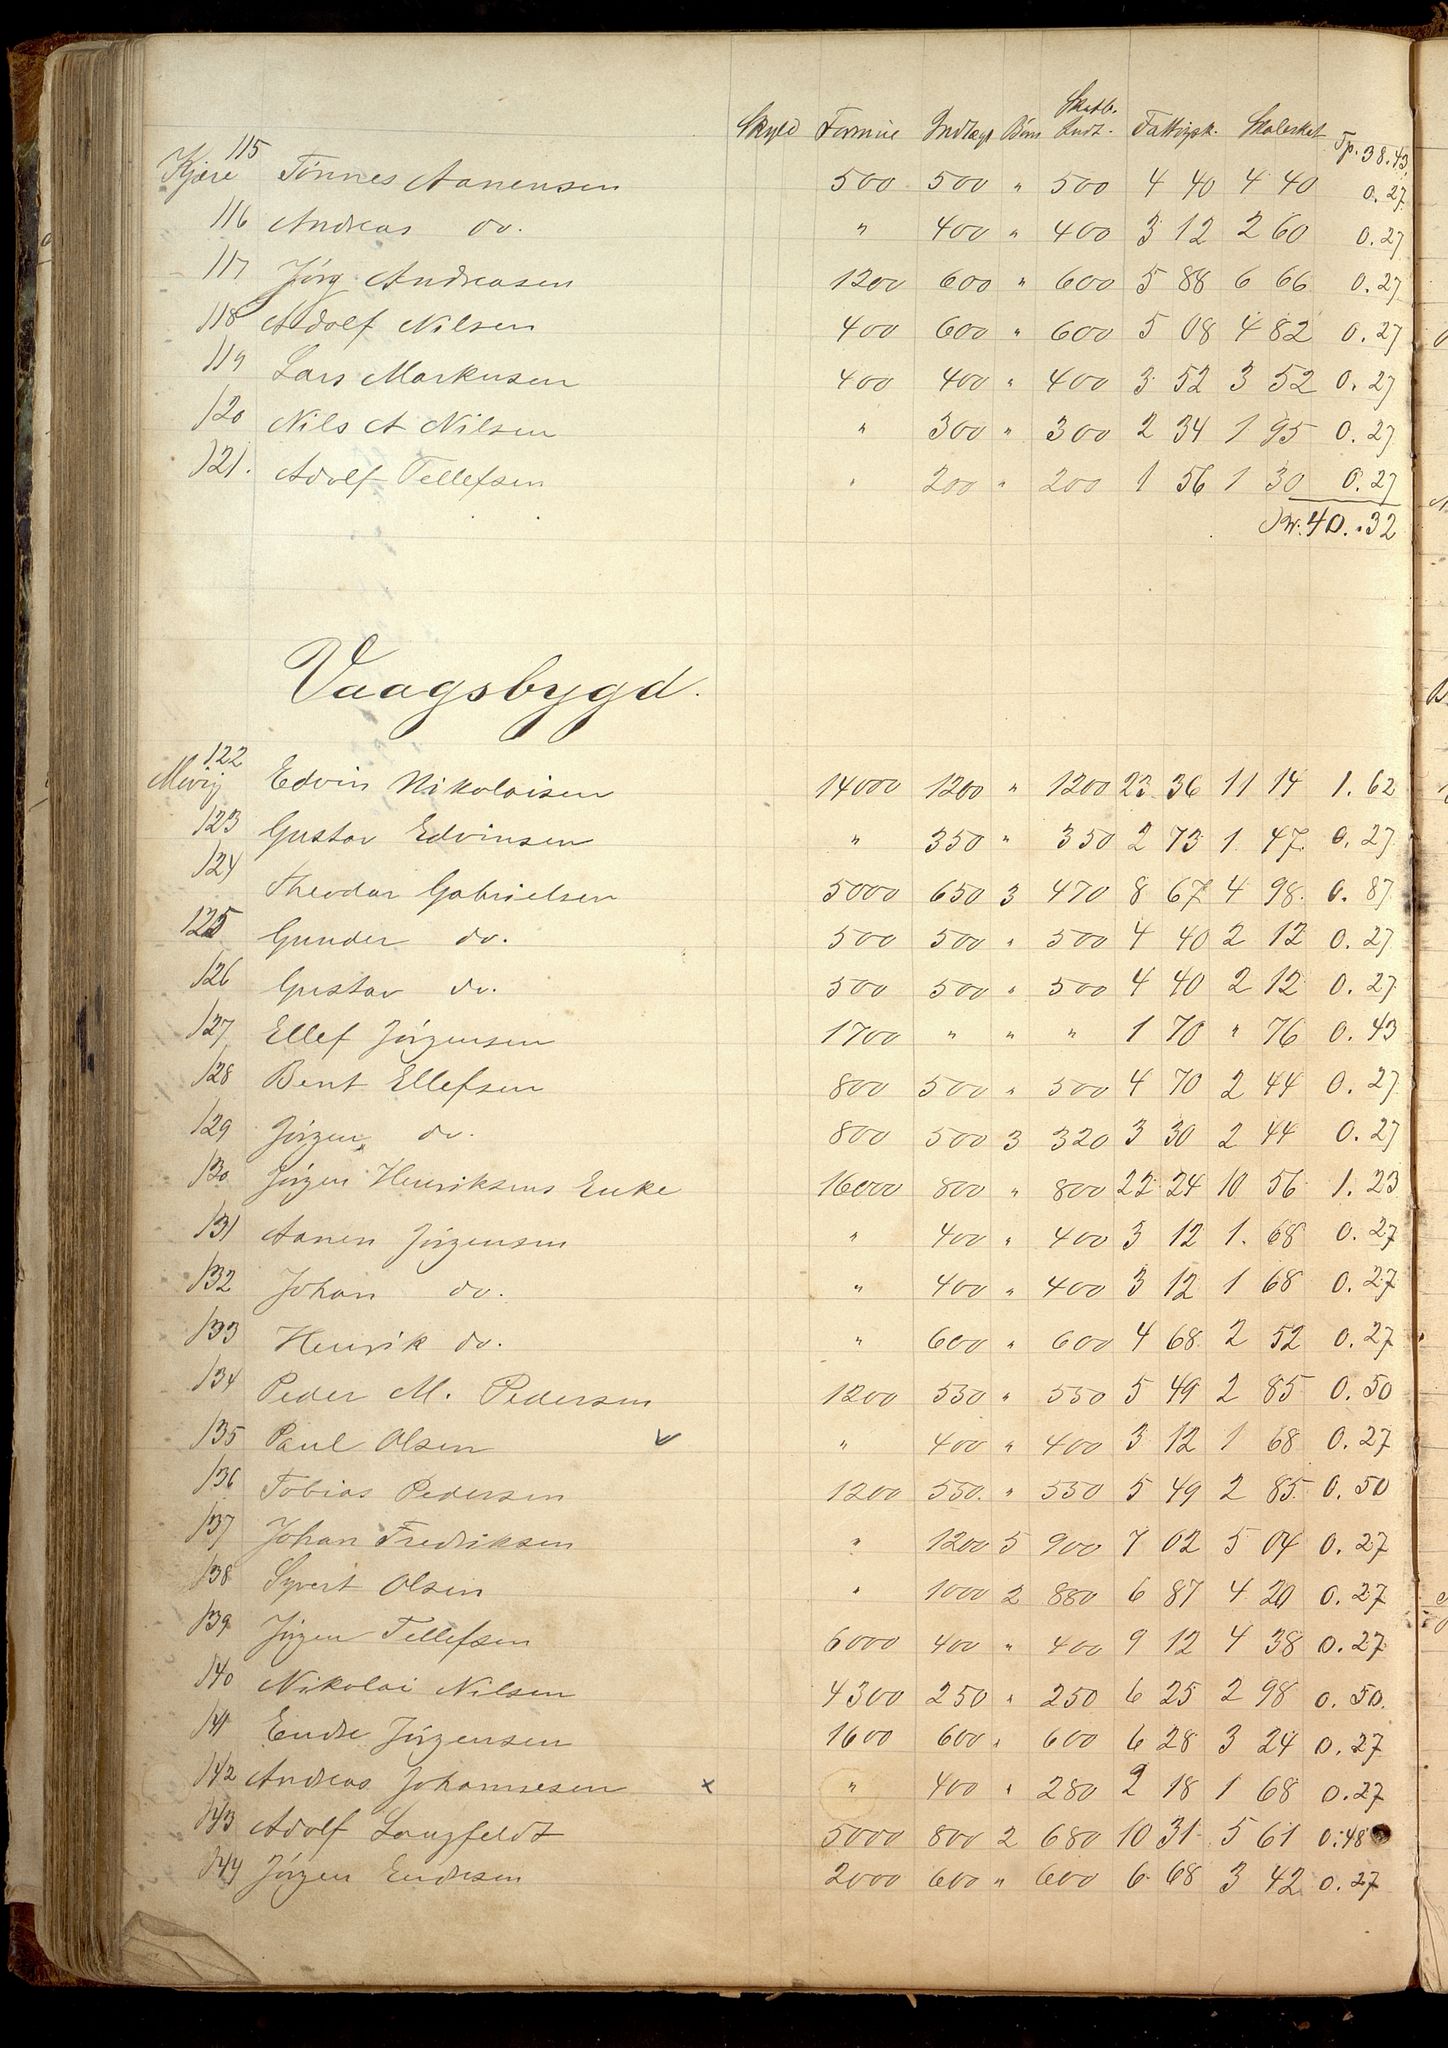 Skyld Formue Indtægt Børn Skatb. Indt. Fattigsk. Skoleskat Tp. 38.43
Kjære 115 Tønnes Aanensen 500 500 " 500 4 40 4 40 0.27
116 Andreas do. " 400 " 400 3 12 2 60 0.27
117 Jørg. Andreasen 1200 600 " 600 5 88 6 66 0.27
118 Adolf Nilsen 400 600 " 600 5 08 4 82 0.27
119 Lars Markusen 400 400 " 400 3 52 3 52 0.27
120 Nils A Nilsen " 300 " 300 2 34 1 95 0.27
121. Adolf Tellefsen " 200 " 200 1 56 1 30 0.27
40.32
Vaagsbygd.
122 Edvin Nikolaisen 14000 1200 " 1200 23 36 11 14 1.62
123 Gustav Edvinsen " 350 " 350 2 73 1 47 0.27
124 Theodor Gabrielsen 5000 650 3 470 8 67 4 98 0.87
125 Gunder do. 500 500 " 500 4 40 2 12 0.27
126 Gustav do. 500 500 " 500 4 40 2 12 0.27
127 Ellef Jörgensen 1700 " " " 1 70 " 76 0.43
128 Bent Ellefsen 800 500 " 500 4 70 2 44 0.27
129 Jörgen do. 800 500 3 320 3 30 2 44 0.27
130 Jörgen Henriksens Enke 16000 800 " 800 22 24 10 56 1.23
131 Aanen Jörgensen " 400 " 400 3 12 1. 68 0.27
132 Johan do. " 400 " 400 3 12 1 68 0.27
133 Henrik do. " 600 " 600 4 68 2 52 0.27
134 Peder M. Pedersen 1200 550 " 550 5 49 2 85 0.50
135 Paul Olsen v " 400 " 400 3 12 1 68 0.27
136 Tobias Pedersen 1200 550 " 550 5 49 2 85 0.50
137 Johan Fredriksen " 1200 5 900 7 02 5 04 0.27
138 Syvert Olsen " 1000 2 880 6 87 4 20 0.27
139 Jörgen Tellefsen 6000 400 " 400 9 12 4 38 0.27
140 Nikolai Nilsen 4300 250 " 250 6 25 2 98 0.50.
141 Endre Jörgensen 1600 600 " 600 6 28 3 24 0.27
142 Andreas Johannesen x " 400 " 280 2 18 1 68 0.27
143 Adolf Langfeldt 5000 800 2 680 10 31 5 61 0.48
144 Jörgen Endresen 2000 600 " 600 6 68 3 42 0.27